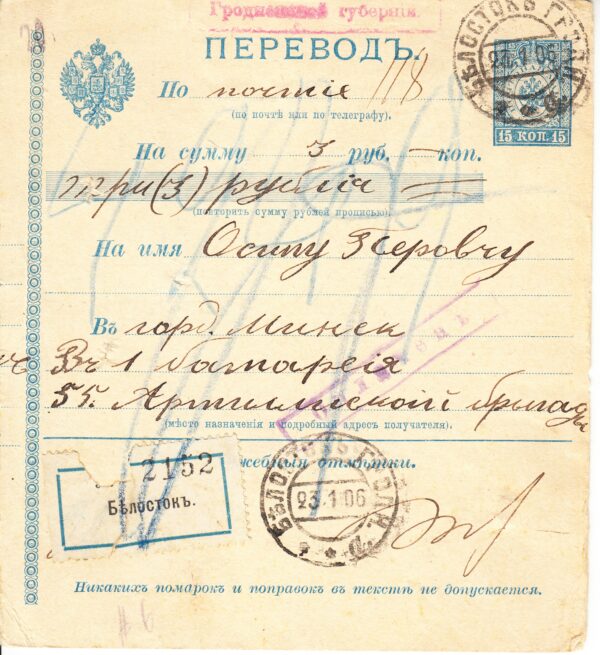 Гродненской губерніи.
ПЕРЕВОДЪ.
По почтѣ 118
(по почтѣ или по телеграфу).
БѢЛОСТОКЪ ГРОДН.
23.1.06
15 КОП. 15
На сумму 3 руб. — коп.
три (3) рублія
(повторить сумму рублей прописью).
На имя Осипу
Въ гор. Минск
Въ 1 батарея
55. Артилийской бригады
(мѣсто назначенія и подробный адресъ получателя).
Служебныя отмѣтки.
2152
Бѣлостокъ.
БѢЛОСТОКЪ ГРОДН.
23.1.06
Никакихъ помарокъ и поправокъ въ текстѣ не допускается.